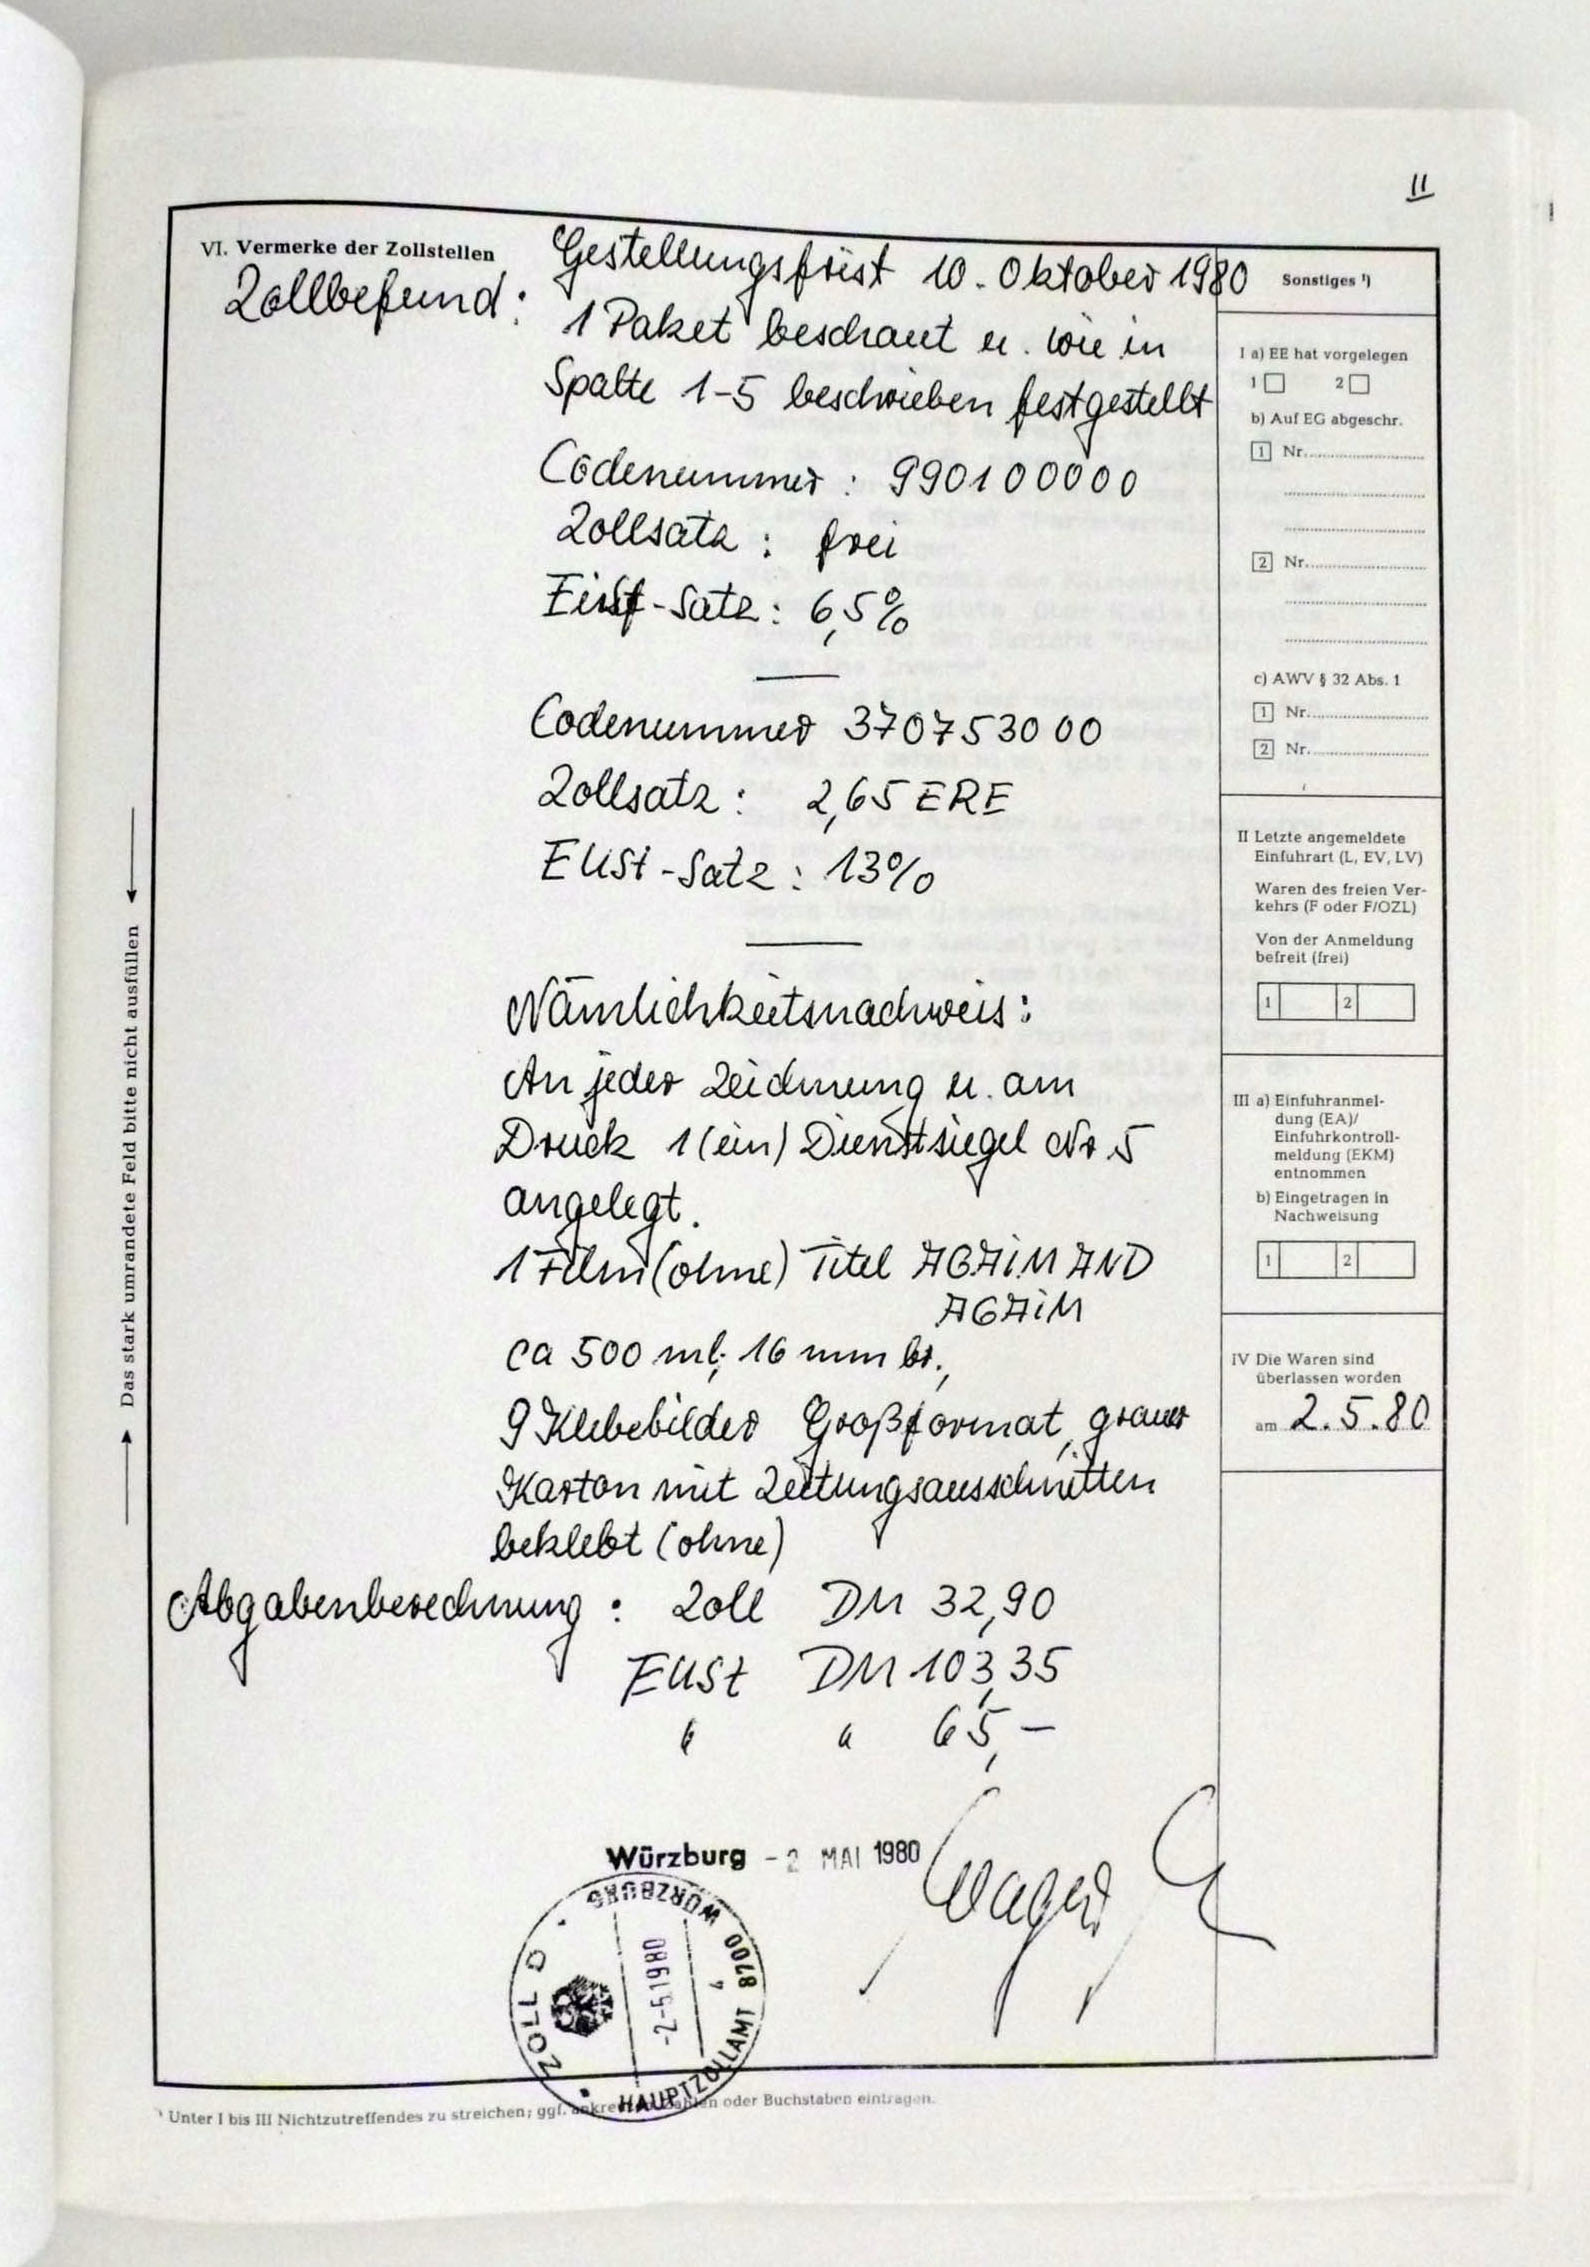 II
VI. Vermerke der Zollstellen
Gestellungsfrist 10. Oktober 1980
Zollbefund:
1 Paket beschaut u. wie in
Spalte 1-5 beschrieben festgestellt
Codenummer: 990100000
Zollsatz: frei
EUSt-Satz: 6,5%
Codenummer 370753000
Zollsatz: 2,65 ERE
EUSt-Satz: 13%
Nämlichkeitsnachweis:
An jeder Zeichnung u. am
Druck 1 (ein) Dienstsiegel Nr. 5
angelegt.
1 Film (ohne) Titel AGAIN AND
AGAIN
ca 500 ml; 16 mm br.,
9 Klebebilder Großformat, grauer
Karton mit Zeitungsausschnitten
beklebt (ohne)
Abgabenberechnung: Zoll DM 32,90
EUSt DM 103,35
" " 65,–
Würzburg - 2 MAI 1980
WÜRZBURG
8700
-2-5.1980
ZOLL
HAUPTZOLLAMT
Das stark umrandete Feld bitte nicht ausfüllen
Sonstiges ¹)
I a) EE hat vorgelegen
1 2
b) Auf EG abgeschr.
1 Nr.
2 Nr.
c) AWV § 32 Abs. 1
1 Nr.
2 Nr.
II Letzte angemeldete
Einfuhrart (L, EV, LV)
Waren des freien Ver-
kehrs (F oder F/OZL)
Von der Anmeldung
befreit (frei)
1 2
III a) Einfuhranmel-
dung (EA)/
Einfuhrkontroll-
meldung (EKM)
entnommen
b) Eingetragen in
Nachweisung
1 2
IV Die Waren sind
überlassen worden
am 2.5.80
¹ Unter I bis III Nichtzutreffendes zu streichen; ggf. oder Buchstaben eintragen.